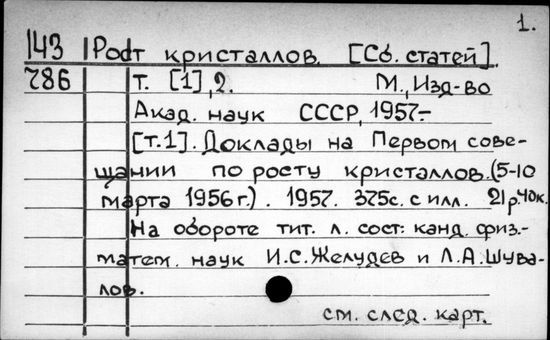 1.
143 Рост кристаллов. [Сб. статей].
786 т. [1], 2. М., Изд-во
Акад. наук СССР, 1957-
[т.1]. Доклады на Первом сове-
щании по росту кристаллов. (5-10
марта 1956 г.). 1957. 375 с. с илл. 21 р. 40 к.
На обороте тит. л. сост: канд. физ.-
матем. наук И.С. Желудев и Л.А. Шува-
лов.
см. след. карт.